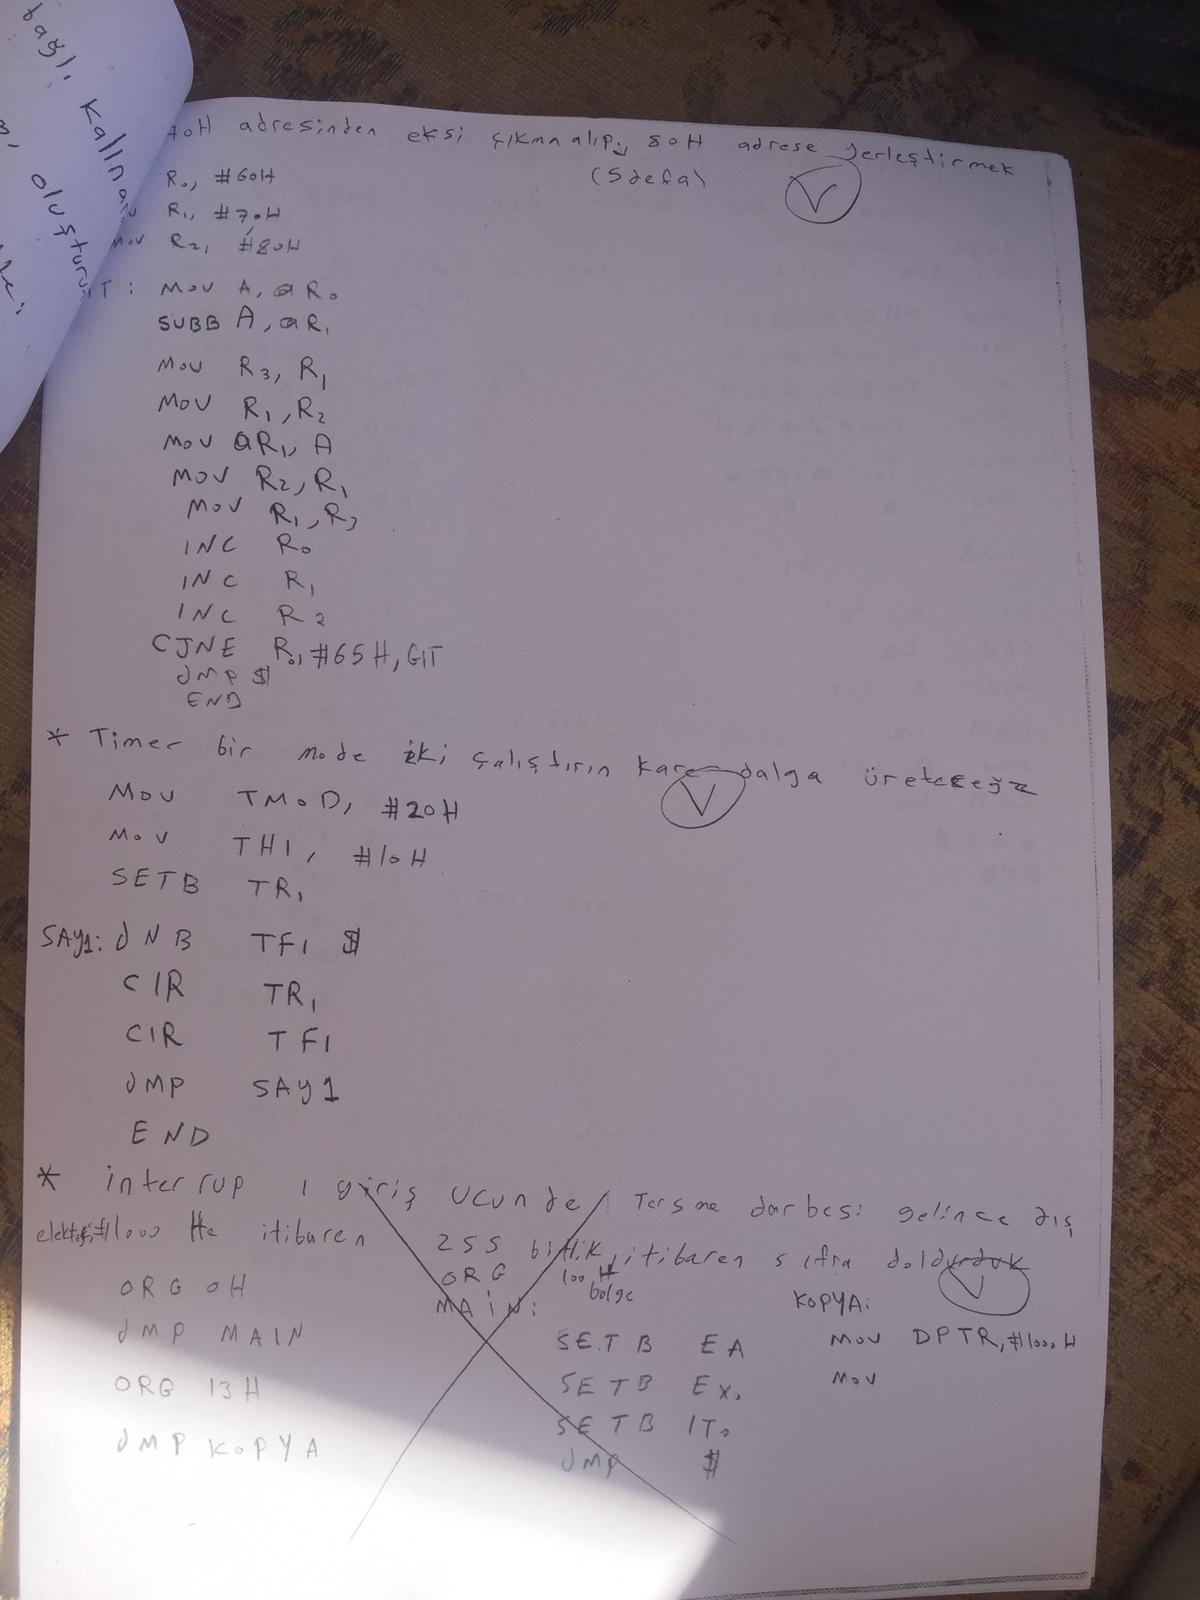 bağlı kalınarak
oluşturun
70H adresinden eksi çıkma alıp, 80H adrese yerleştirmek
(5 defa)
R0, #60H
R1, #70H
mov R2, #80H
GIT: MOV A, @R0
SUBB A, @R1
MOV R3, R1
MOV R1, R2
MOV @R1, A
MOV R2, R1
MOV R1, R3
INC R0
INC R1
INC R2
CJNE R0, #65H, GIT
JMP $
END
* Timer bir mode iki çalıştırın kare dalga üreteceğiz
MOV TMOD, #20H
MOV TH1, #10H
SETB TR1
SAY1: JNB TF1 $
CIR TR1
CIR TF1
JMP SAY1
END
* interrup 1 giriş ucunde Tersme darbesi gelince dış
#1000 He itibaren 255 bitlik itibaren sıfra doldurduk
ORG 0H
JMP MAIN
ORG 13H
JMP KOPYA
ORG 100H
bolge
MAİN:
SETB EA
SETB EX0
SETB IT0
JMP $
KOPYA:
MOV DPTR, #1000H
MOV